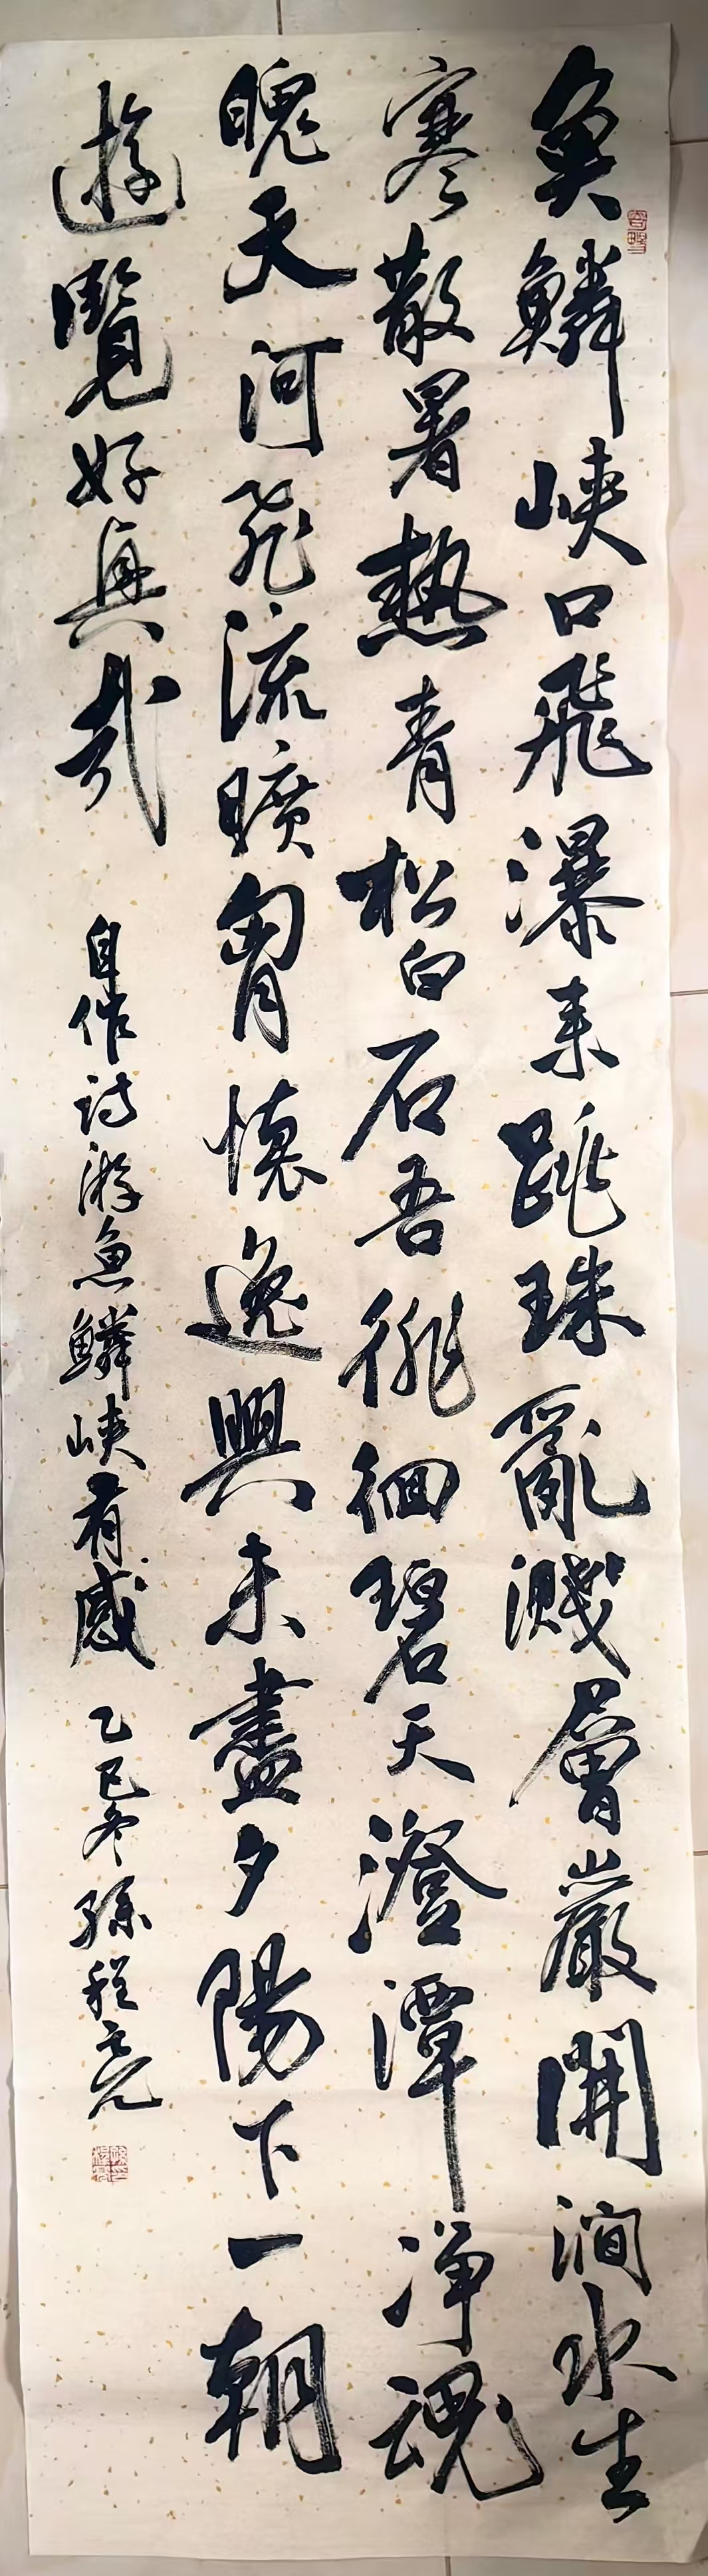 魚鱗峽口飛瀑来跳珠亂濺層巖開澗水生
寒散暑熱青松白石吾徘徊碧天澄潭净魂
魄天河飛流曠胷懷逸興未盡夕陽下一朝
遊覽好興哉
自作詩游魚鱗峽有感 乙巳冬 孫程亮